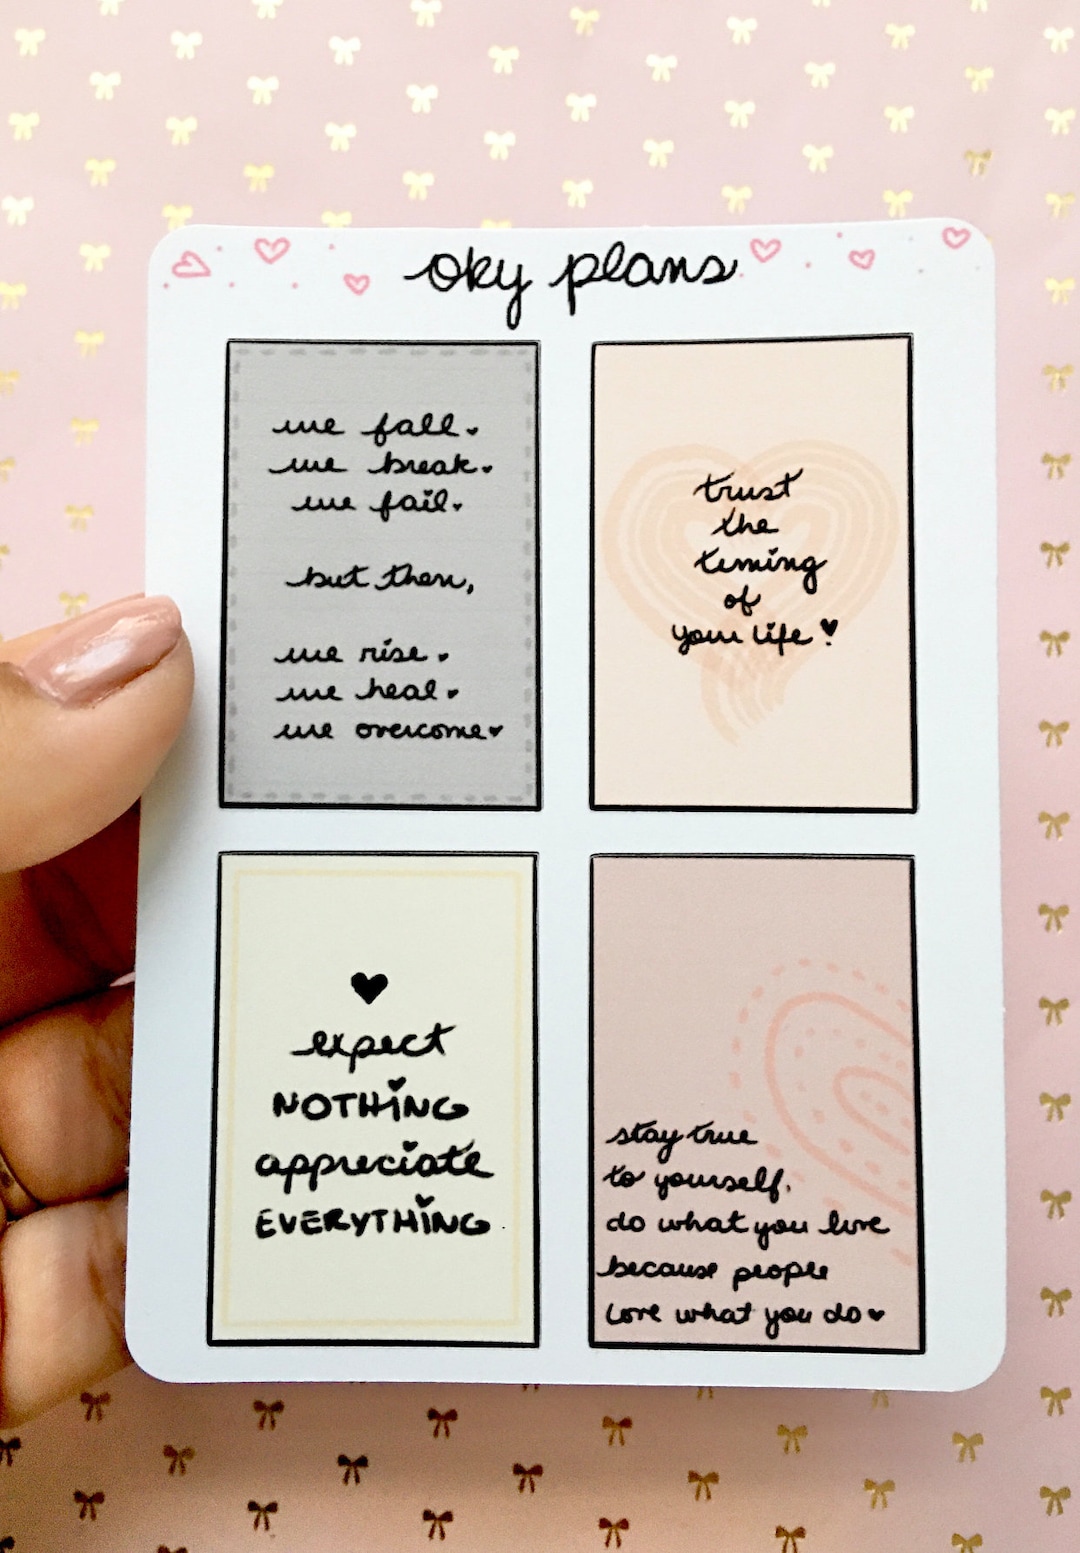 oky plans
we fall.
we break.
we fail.
but then,
we rise.
we heal.
we overcome
trust
the
timing
of
your life!
expect
NOTHING
appreciate
EVERYTHING
stay true
to yourself.
do what you love
because people
love what you do